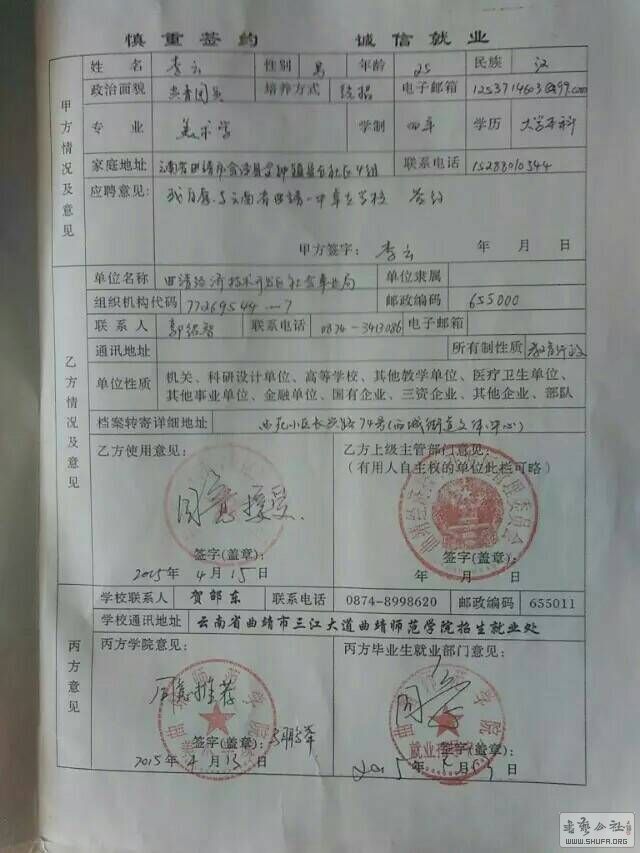 慎重签约 诚信就业
甲方情况及意见
姓名 李云 性别 男 年龄 25 民族 汉
政治面貌 共青团员 培养方式 统招 电子邮箱
专业 美术学 学制 四年 学历 大学本科
家庭地址 联系电话
应聘意见: 我自愿与云南省曲靖一中卓立学校 签约
甲方签字: 李云 年 月 日
乙方情况及意见
单位名称 曲靖经济技术开发区社会事业局 单位隶属
组织机构代码 77269544-7 邮政编码 655000
联系人 联系电话 0874-3413086 电子邮箱
通讯地址 所有制性质
单位性质 机关、科研设计单位、高等学校、其他教学单位、医疗卫生单位、
其他事业单位、金融单位、国有企业、三资企业、其他企业、部队
档案转寄详细地址 74号(西城街道文体中心)
乙方使用意见:
同意接受.
签字(盖章):
2015年4月15日
乙方上级主管部门意见:
(有用人自主权的单位此栏可略)
签字(盖章):
年 月 日
丙方意见
学校联系人 贺部东 联系电话 0874-8998620 邮政编码 655011
学校通讯地址 云南省曲靖市三江大道曲靖师范学院招生就业处
丙方学院意见:
同意推荐
签字(盖章):
2015年4月13日
丙方毕业生就业部门意见:
同意
就业
签字(盖章):
2015年 月 日
书艺公社
WWW.SHUFA.ORG